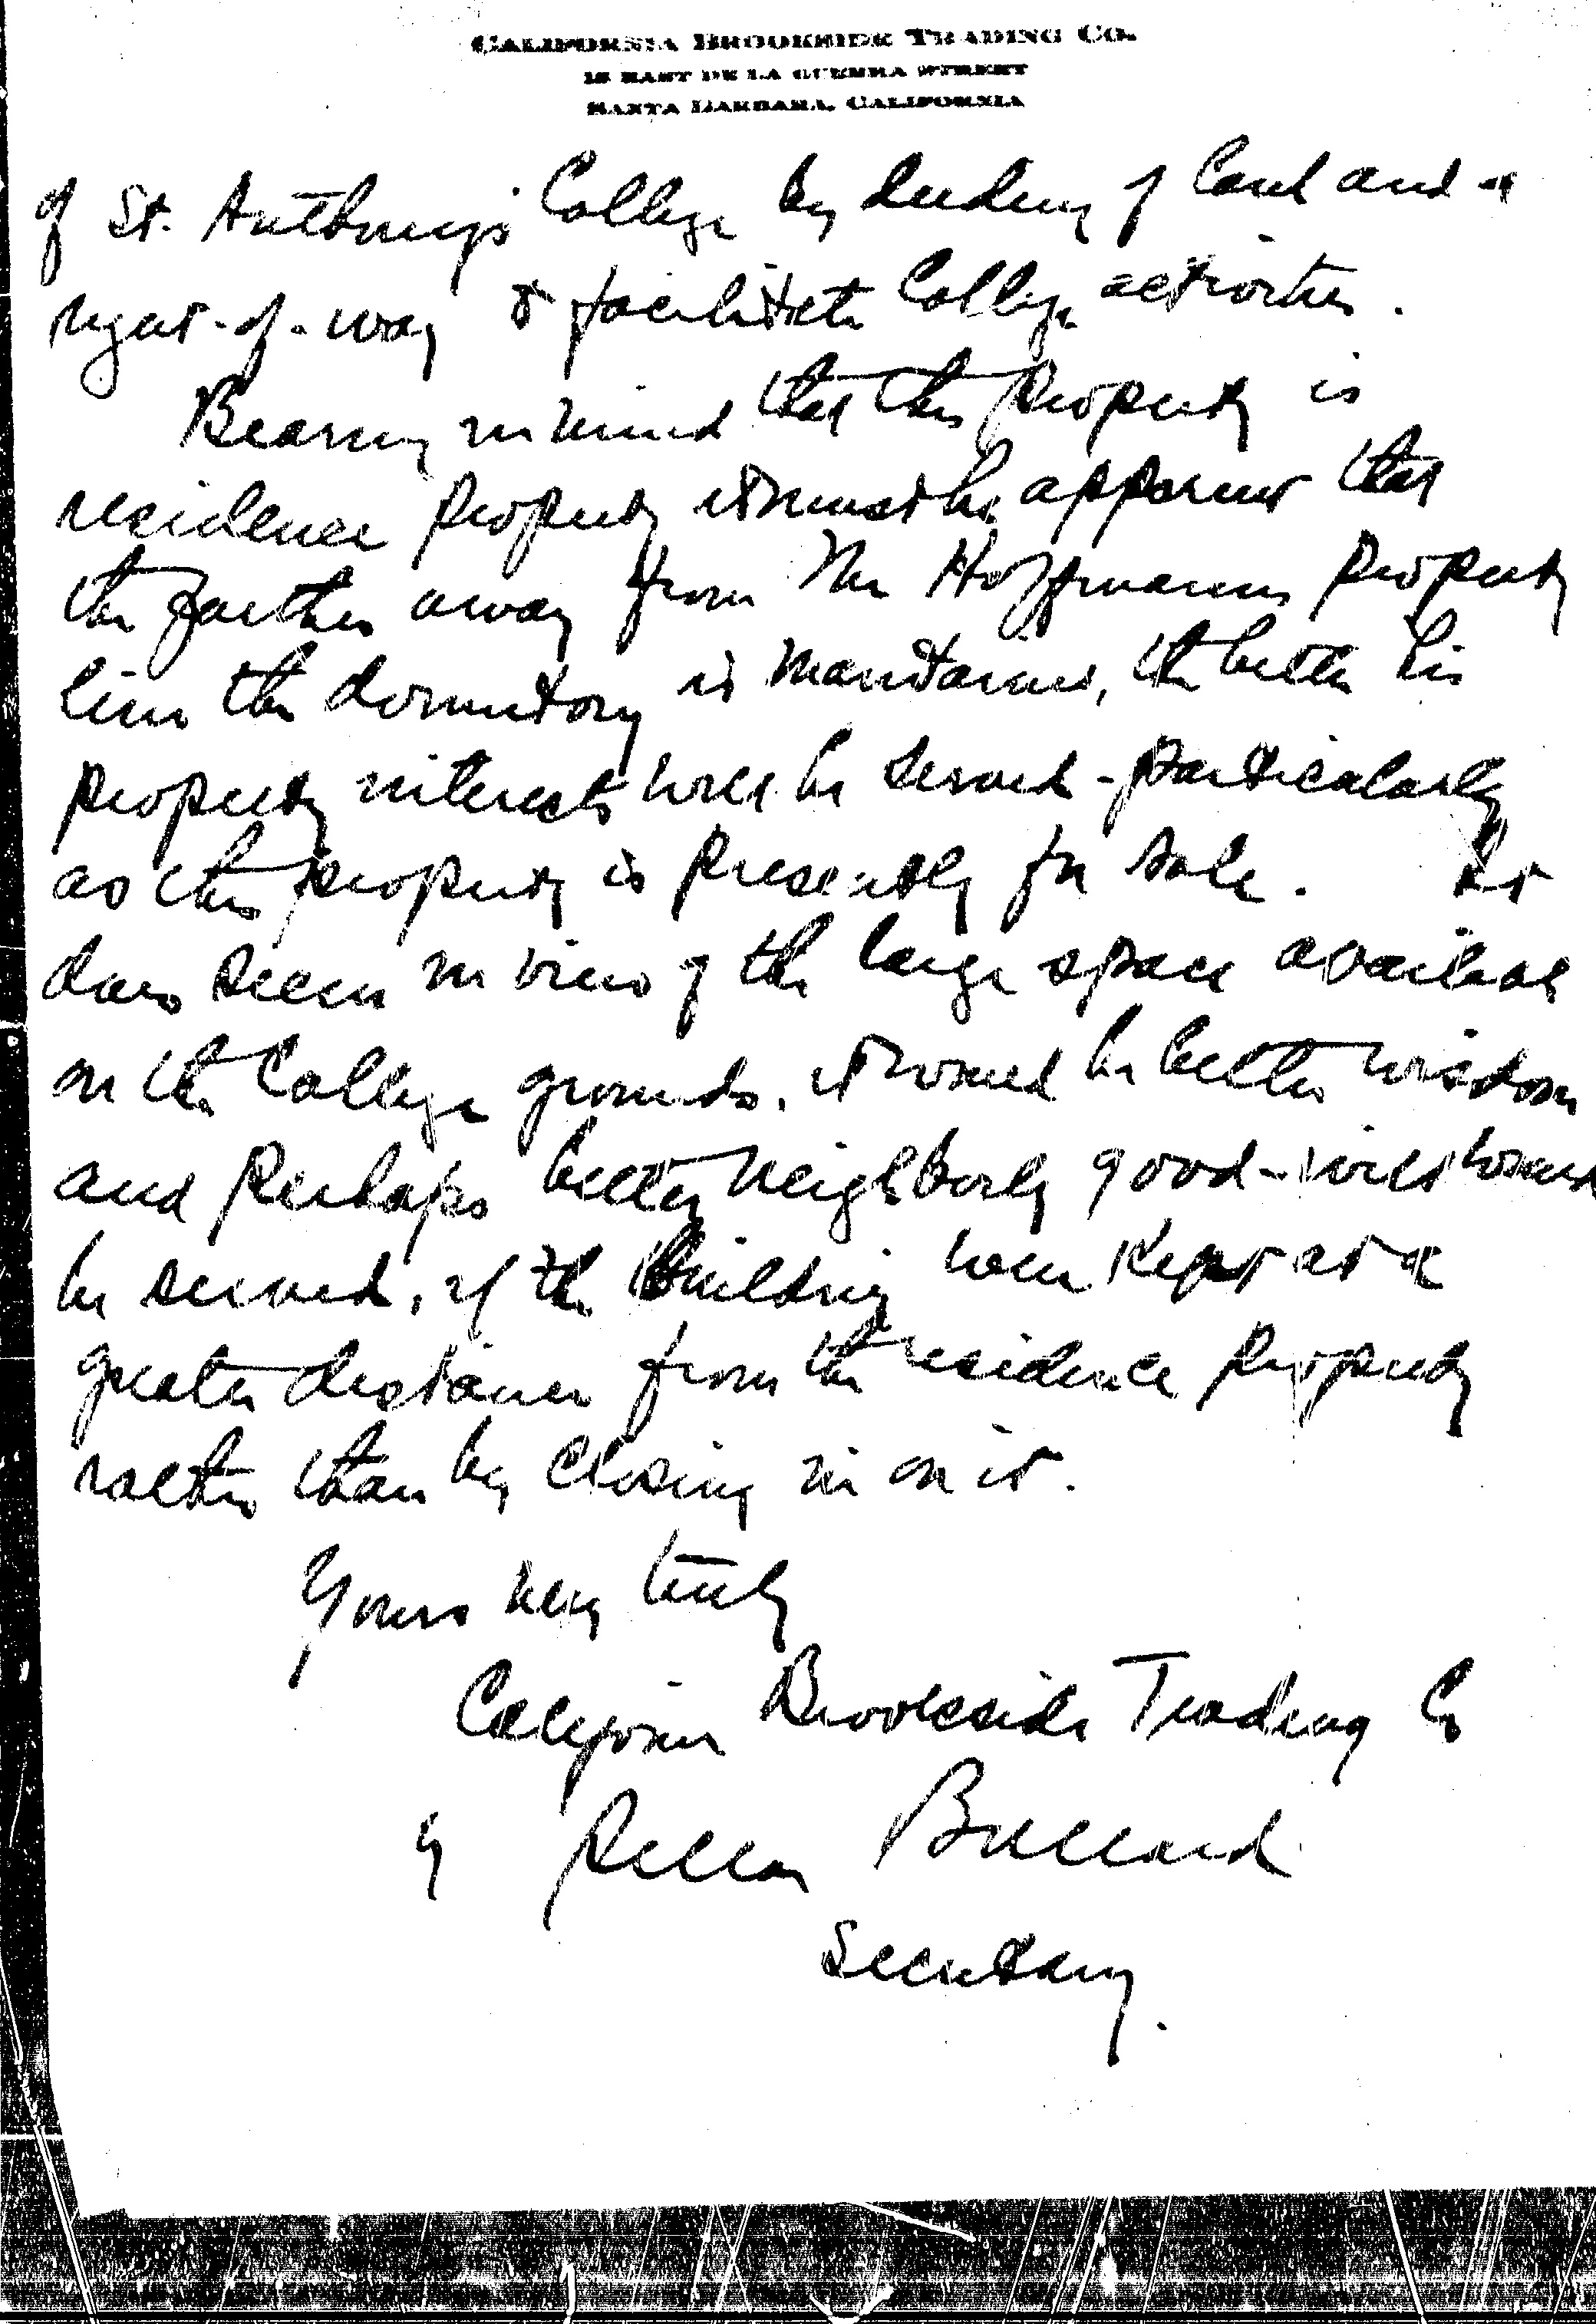 CALIFORNIA BROOKSIDE TRADING CO.
15 EAST DE LA GUERRA STREET
SANTA BARBARA, CALIFORNIA
of St. Anthony's College by deeding of land and a
right-of-way to facilitate College activities.
Bearing in mind that this property is
residence property it must be apparent that
the farther away from Mr Hoffmann's property
line the dormitory is maintained, the better his
property interests will be served - particularly
as this property is presently for sale. It
does seem in view of the large space available
on the College grounds, it would be better wisdom
and perhaps better neighborly good-will would
be served, if the building were kept at a
greater distance from the residence property
rather than by closing in on it.
Yours very truly
California Brookside Trading Co
by Bullard
Secretary.